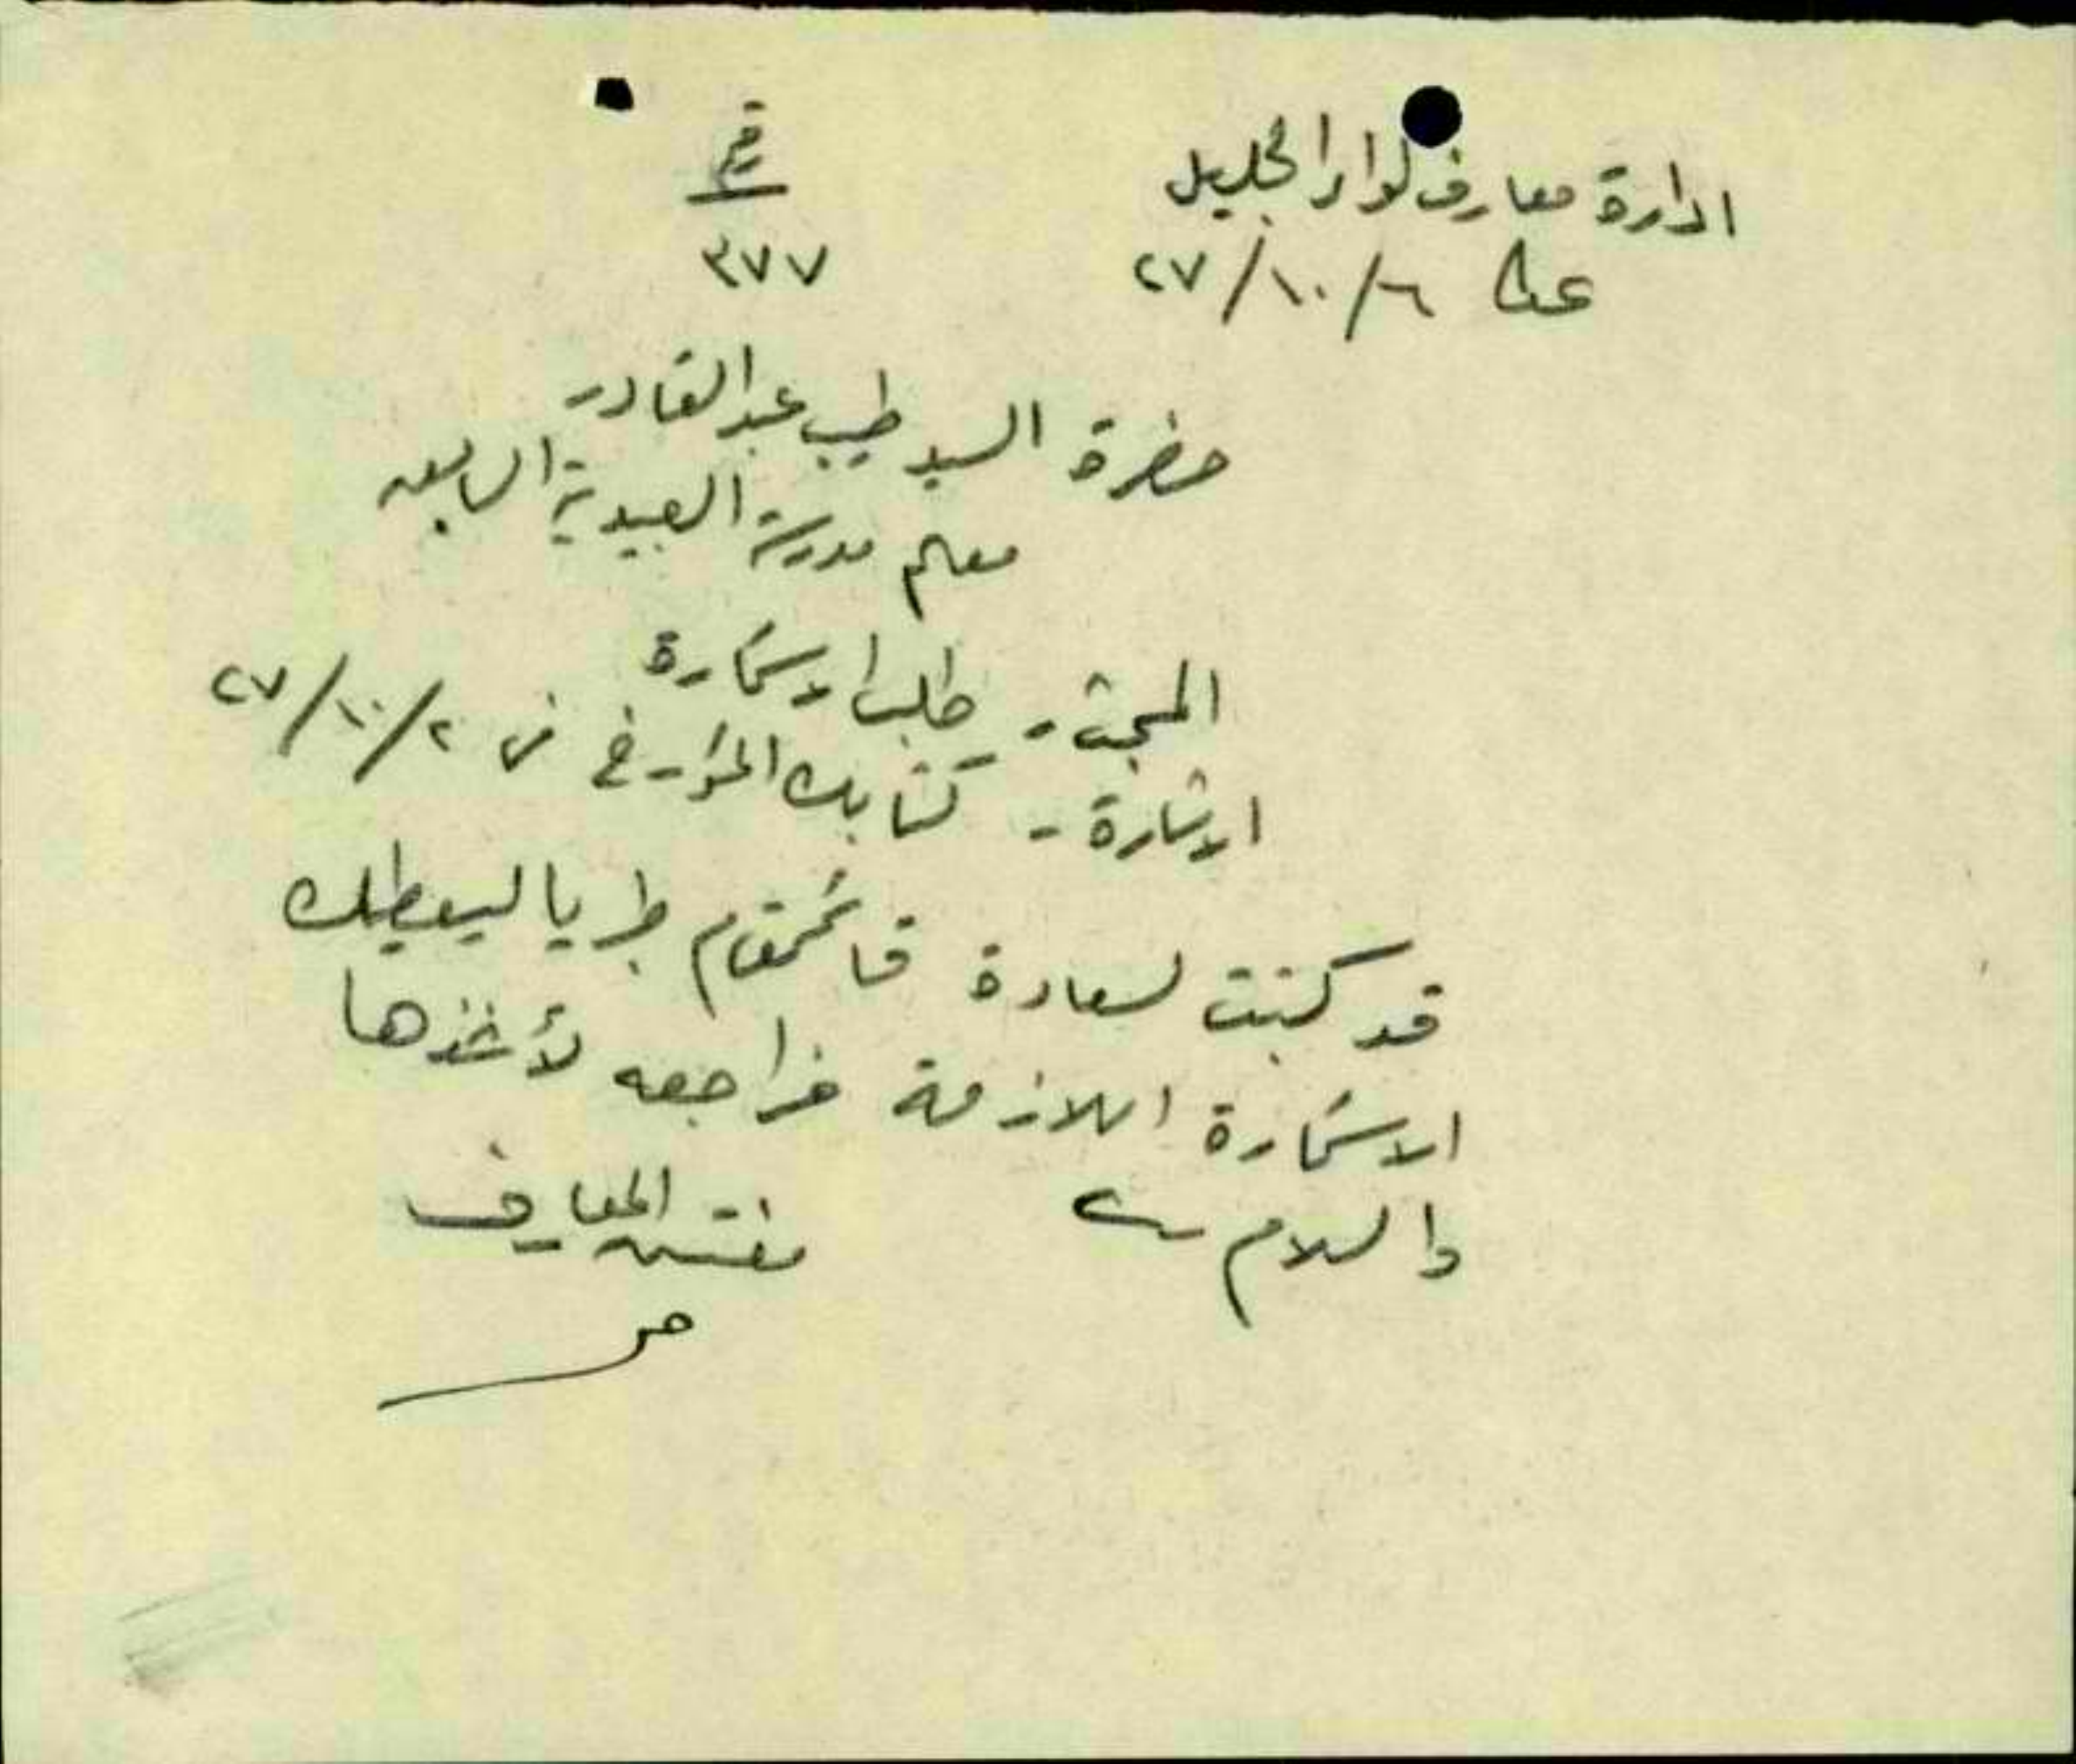 ادارة معارف لواء الجليل
عكا ٢٧/١٠/٦
نمرة
٣٧٧
حضرة السيد طيب عبد القادر
معلم مدرسة العبيدية السابق
المبحث - طلب الاستمارة
الاشارة - كتابك المؤرخ في ٢٧/١٠/٢
قد كتبت لسعادة قائمقام طبريا ليعطيك
الاستمارة اللازمة فراجعه لأخذها
والسلام
مفتش المعارف